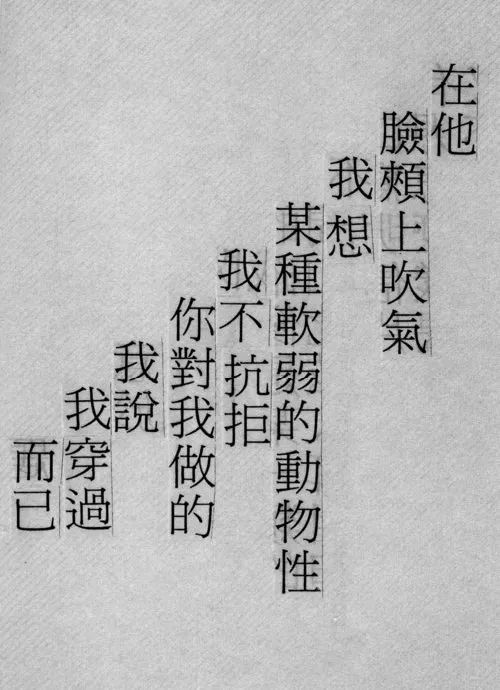 在他
臉頰上吹氣
我想
某種軟弱的動物性
我不抗拒
你對我做的
我說
我穿過
而已